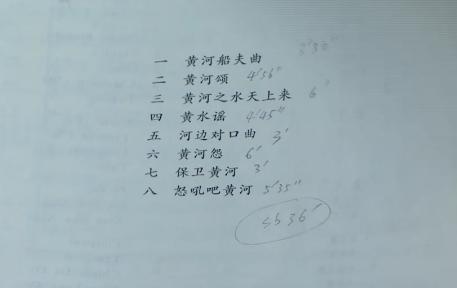 一 黄河船夫曲
二 黄河颂 4'56"
三 黄河之水天上来 6'
四 黄水谣 4'45"
五 河边对口曲 3'
六 黄河怨 6'
七 保卫黄河 3'
八 怒吼吧黄河 5'35"
36'